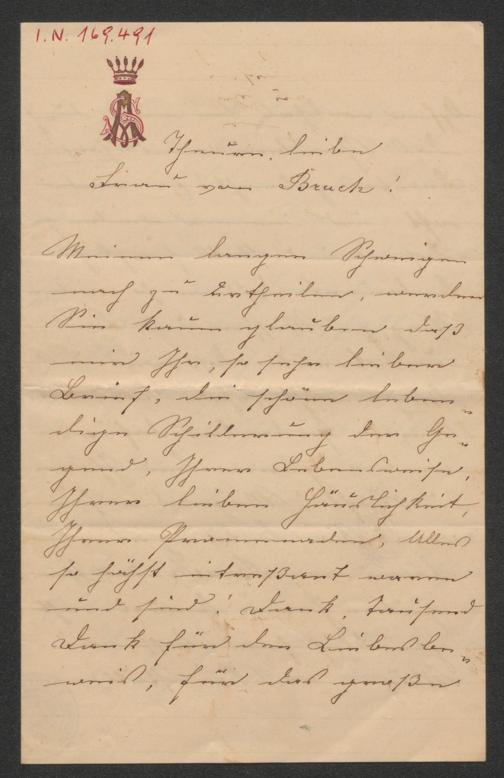 I.N. 169.491
Theure, liebe
Frau von Bruck!
Meinem langen Schweigen
nach zu urtheilen, werden
Sie kaum glauben daß
mir Ihr, so sehr lieber
Brief, die schöne leben„
dige Schilderung der Ge„
gend, Ihrer Lebensweise,
Ihrer lieben Häuslichkeit,
Ihrer Promenaden, Alles
so höchst intreßant waren
und sind! Dank, tausend
Dank für den Liebesbe„
weis, für das große